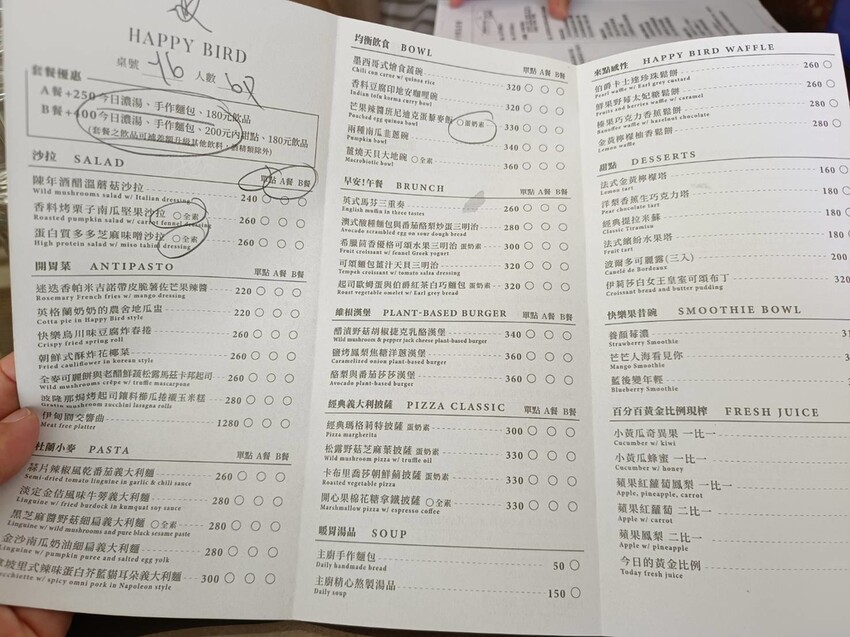 HAPPY BIRD
桌號 16 人數
套餐優惠
A餐+250 今日濃湯、手作麵包、180元飲品
B餐+400 今日濃湯、手作麵包、200元內甜點、180元飲品
沙拉 SALAD 單點 A餐 B餐
陳年酒醋溫蘑菇沙拉 240
Wild mushrooms salad w/ Italian dressing
香料烤栗子南瓜堅果沙拉 全素 260
Roasted pumpkin salad w/ carrot fennel dressing
蛋白質多多芝麻味噌沙拉 全素 260
High protein salad w/ miso tahini dressing
開胃菜 ANTIPASTO 單點 A餐 B餐
迷迭香帕米吉諾帶皮脆薯佐芒果辣醬 220
Rosemary French fries w/ mango dressing
英格蘭奶奶的農舍地瓜盅 220
Cotta pie in Happy Bird style
快樂鳥川味豆腐炸春捲 260
Crispy fried spring roll
朝鮮式酥炸花椰菜 260
Fried cauliflower in korean style
全麥可麗餅與老醋鮮蔬松露馬茲卡邦起司 260
Wild mushrooms crêpe w/ truffle mascarpone
波隆那焗烤起司鑲料櫛瓜捲襯玉米糕 280
Gratin mushroom zucchini lasagna rolls
伊甸園交響曲 1280
Meat free platter
杜蘭小麥 PASTA 單點 A餐 B餐
蒜片辣椒風乾番茄義大利麵 260
Semi-dried tomato linguine in garlic & chili sauce
淡定金桔風味牛蒡義大利麵 280
Linguine w/ fried burdock in kumquat soy sauce
黑芝麻醬野菇細扁義大利麵 全素 280
Linguine w/ wild mushrooms and pure black sesame paste
金沙南瓜奶油細扁義大利麵 280
Linguine w/ pumpkin puree and salted egg yolk
坡里式辣味蛋白芥藍貓耳朵義大利麵 300
w/ spicy omni pork in Napoleon style
均衡飲食 BOWL 單點 A餐 B餐
墨西哥式燴食蔬碗 320
Chili con carne w/ quinoa rice
香料豆腐印地安咖哩碗 320
Indian tofu korma curry bowl
芒果辣醬班尼迪克蛋藜麥飯 蛋奶素 330
Poached egg quinoa bowl
兩種南瓜韭蔥碗 340
Pumpkin bowl
薑燒天貝大地碗 全素 360
Macrobiotic bowl
早安!午餐 BRUNCH 單點 A餐 B餐
英式馬芬三重奏 260
English muffin in three tastes
澳式酸種麵包與番茄酪梨炒蛋三明治 280
Avocado scrambled egg on sour dough bread
希臘茴香優格可頌水果三明治 300
Fruit croissant w/ fennel Greek yogurt
可頌麵包薑汁天貝三明治 320
Tempeh croissant w/ tomato salsa dressing
起司歐姆蛋與伯爵紅茶白巧麵包 蛋奶素 320
Roast vegetable omelet w/ Earl grey bread
維根漢堡 PLANT-BASED BURGER 單點 A餐 B餐
醋漬野菇胡椒捷克乳酪漢堡 340
Wild mushroom & pepper jack cheese plant-based burger
鹽烤鳳梨焦糖洋蔥漢堡 360
Caramelized onion plant-based burger
酪梨與番茄莎莎漢堡 360
Avocado plant-based burger
經典義大利披薩 PIZZA CLASSIC 單點 A餐 B餐
經典瑪格莉特披薩 蛋奶素 300
Pizza margherita
松露野菇芝麻葉披薩 蛋奶素 330
Wild mushroom pizza w/ truffle oil
卡布里喬莎朝鮮薊披薩 蛋奶素 330
Roasted vegetable pizza
開心果棉花糖拿鐵披薩 全素 330
Marshmallow pizza w/ espresso coffee
暖胃湯品 SOUP
主廚手作麵包 50
Daily handmade bread
主廚精心熬製湯品 150
Daily soup
來點感性 HAPPY BIRD WAFFLE
伯爵卡士達珍珠鬆餅 260
Pearl waffle w/ Earl grey custard
鮮果野莓太妃糖鬆餅 260
Fruits and berries waffle w/ caramel
榛果巧克力香蕉鬆餅 280
Banoffee waffle w/ hazelnut chocolate
金黃檸檬柚香鬆餅 280
Lemon waffle
甜點 DESSERTS
法式金黃檸檬塔 160
Lemon tart
洋梨香蕉生巧克力塔 160
Pear chocolate tart
經典提拉米蘇 180
Classic Tiramisu
法式繽紛水果塔 180
Fruit tart
波爾多可麗露(三入) 200
Canelé de Bordeaux
伊莉莎白女王皇室可頌布丁
Croissant bread and butter pudding
快樂果昔碗 SMOOTHIE BOWL
養顏莓濃
Strawberry Smoothie
芒芒人海看見你
Mango Smoothie
藍後變年輕
Blueberry Smoothie
百分百黃金比例現榨 FRESH JUICE
小黃瓜奇異果 一比一
Cucumber w/ kiwi
小黃瓜蜂蜜 一比一
Cucumber w/ honey
蘋果紅蘿蔔鳳梨 一比一
Apple, pineapple, carrot
蘋果紅蘿蔔 二比一
Apple w/ carrot
蘋果鳳梨 二比一
Apple w/ pineapple
今日的黃金比例
Today fresh juice